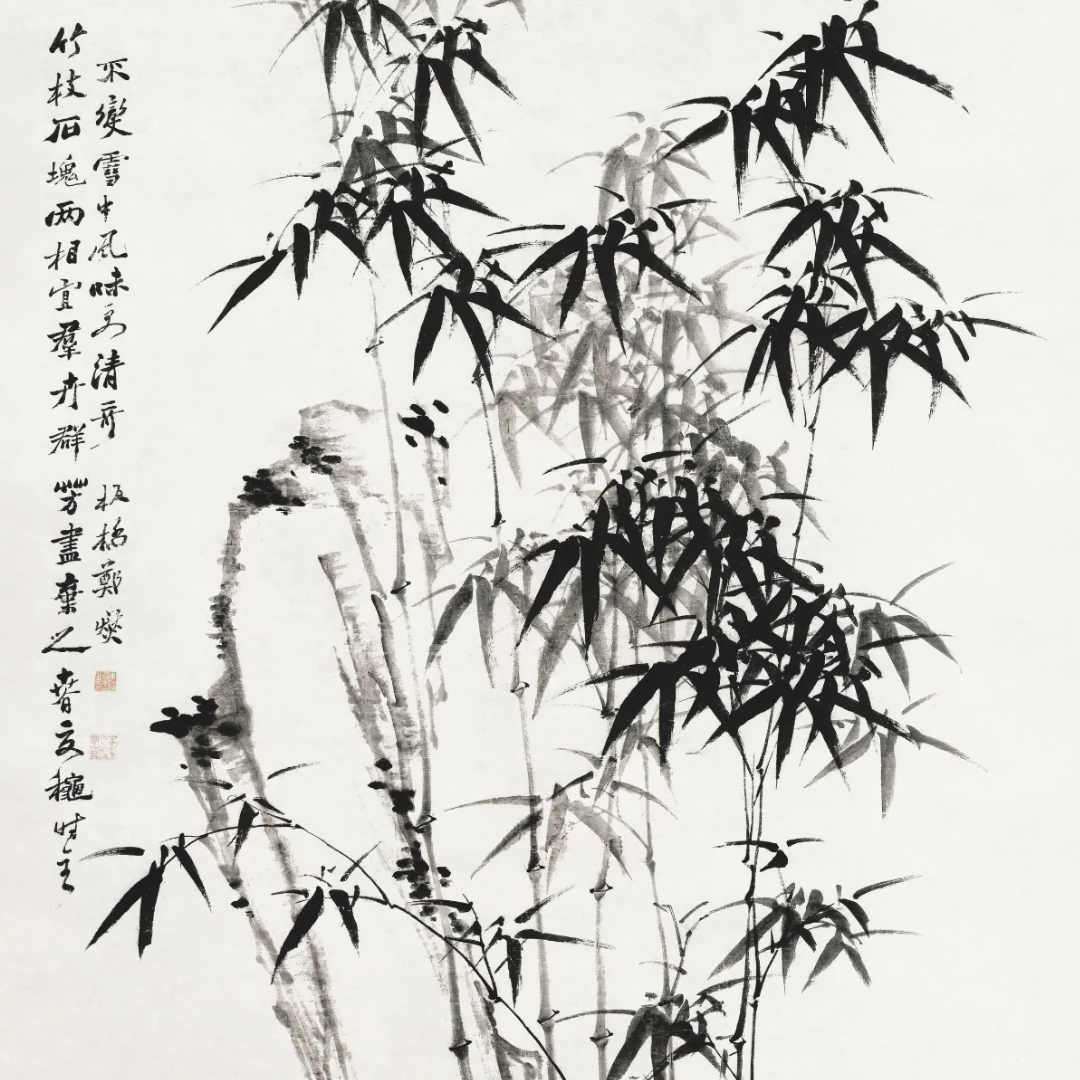 竹枝石塊兩相宜羣卉群芳盡棄之春夏穐時全
不變雪中風味更清奇
板橋鄭燮